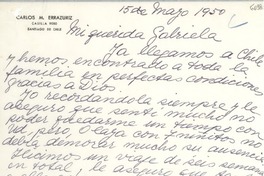 15 de Mayo 1950
CARLOS M. ERRAZURIZ
CASILLA
SANTIAGO DE CHILE
Mi querida Gabriela
Ya llegamos a Chile
y hemos encontrado a toda la
familia en perfectas condiciones
gracias a Dios.
Yo recordandola siempre y le
aseguro que sentí mucho no
poder quedarme un tiempo con
Ud. pero Olaya con
debía demorar mucho su ausencia
Hicimos un viaje de seis semanas
en total, le aseguro que